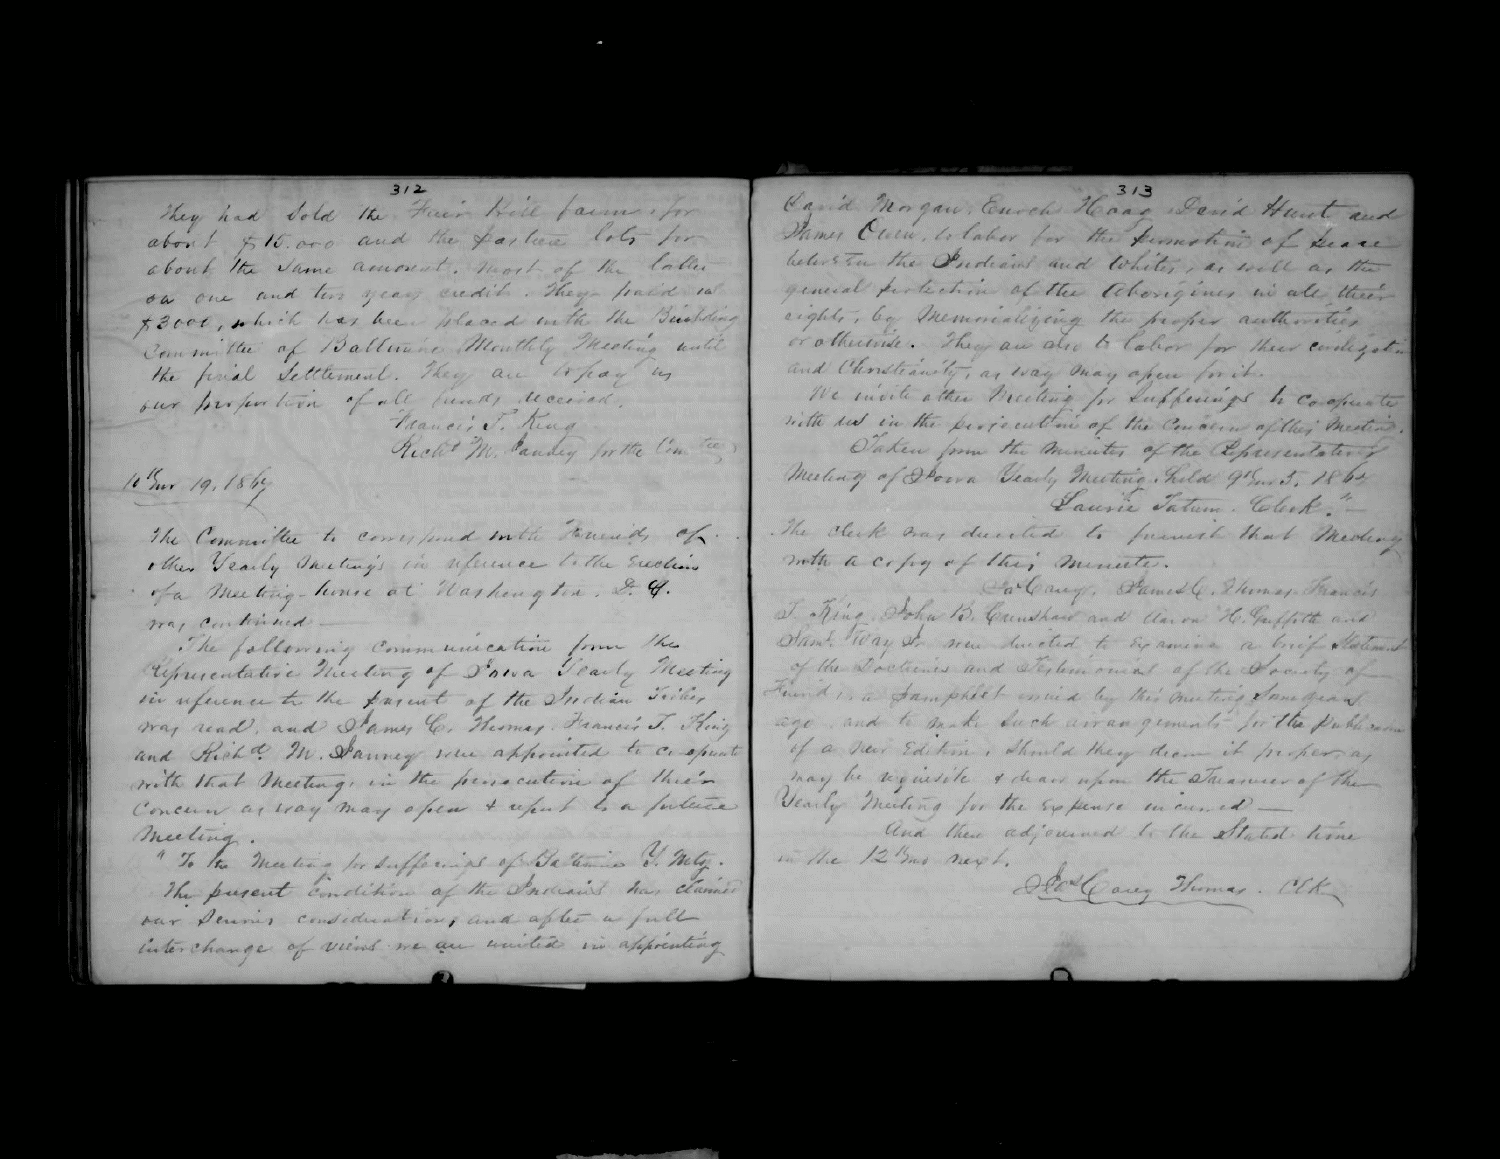 312
They had sold the Fair Hill farm, for
about $15.000 and the pasture lots for
about the same amount. Most of the latter
on one and two years credit. They paid us
$3000, which has been placed with the Building
Committee of Baltimore Monthly Meeting until
the final Settlement. They are to pay us
our proportion of all funds received.
Francis T. King
Richd M. Janney for the Comtee
10th mo 19, 1867
The Committee to correspond with Friends of
other Yearly Meetings in reference to the Erection
of a Meeting-house at Washington. D. C.
was continued —
The following communication from the
Representative Meeting of Iowa Yearly Meeting
in reference to the present of the Indian Tribes
was read, and James C. Thomas, Francis T. King
and Richd. M. Janney were appointed to co-operate
with that Meeting, in the prosecution of their
Concern as way may open & report to a future
Meeting.
" To the Meeting for Sufferings of Baltimore Y. Mtg.
The present Condition of the Indians has claimed
our serious consideration, and after a full
interchange of views we are united in appointing
313
David Morgan, Enoch Hoag, David Hunt and
James Owen, to labor for the promotion of peace
between the Indians and Whites, as well as the
general protection of the Aborigines in all their
rights, by Memorializing the proper authorities
or otherwise. They are also to labor for their civilization
and Christianity, as way may open for it.
We invite other Meeting for Sufferings to co-operate
with us in the prosecution of the Concern of this Meeting.
Taken from the Minutes of the Representative
Meeting of Iowa Yearly Meeting held 9th mo 5, 1867
Lawrie Tatum. Clerk."—
The clerk was directed to furnish that Meeting
with a copy of this minute.
Jas Carey, James C. Thomas, Francis
T. King, John B. Crenshaw and Aaron H. Griffith and
Saml. Way Jr were directed to examine a brief Statement
of the Doctrines and Testimonies of the Society of
Friends, a Pamphlet issued by this meeting some years
ago, and to make such arrangements for the publication
of a new Edition, should they deem it proper, as
may be requisite & draw upon the Treasurer of the
Yearly Meeting for the expense incurred —
And then adjourned to the Stated time
in the 12th mo next.
Jas Carey Thomas. Clk